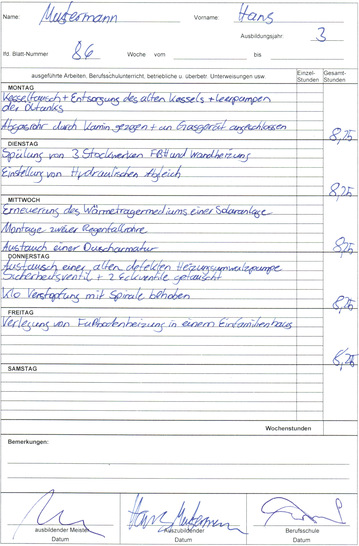 Name: Mustermann Vorname: Hans
Ausbildungsjahr: 3
lfd. Blatt-Nummer 86 Woche vom bis
ausgeführte Arbeiten, Berufsschulunterricht, betriebliche u. überbetr. Unterweisungen usw. Einzel-Stunden Gesamt-Stunden
MONTAG
Kesseltausch + Entsorgung des alten Kessels + leerpumpen
der Öltanks
Abgasrohr durch Kamin gezogen + an Gasgerät angeschlossen 8,25
DIENSTAG
Spülung von 3 Stockwerken FBH und Wandheizung
Einstellung von Hydraulischen Abgleich
8,25
MITTWOCH
Erneuerung des Wärmeträgermediums einer Solaranlage
Montage zweier Regenfallrohre
Austauch einer Duscharmatur 8,25
DONNERSTAG
Austausch einer alten defekten Heizungsumwälzpumpe
Sicherheitsventil + 2 Eckventile getauscht
Klo Verstopfung mit Spirale behoben 8,25
FREITAG
Verlegung von Fußbodenheizung in einem Einfamilienhaus
8,25
SAMSTAG
Wochenstunden
Bemerkungen:
Hans Mustermann
ausbildender Meister Auszubildender Berufsschule
Datum Datum Datum